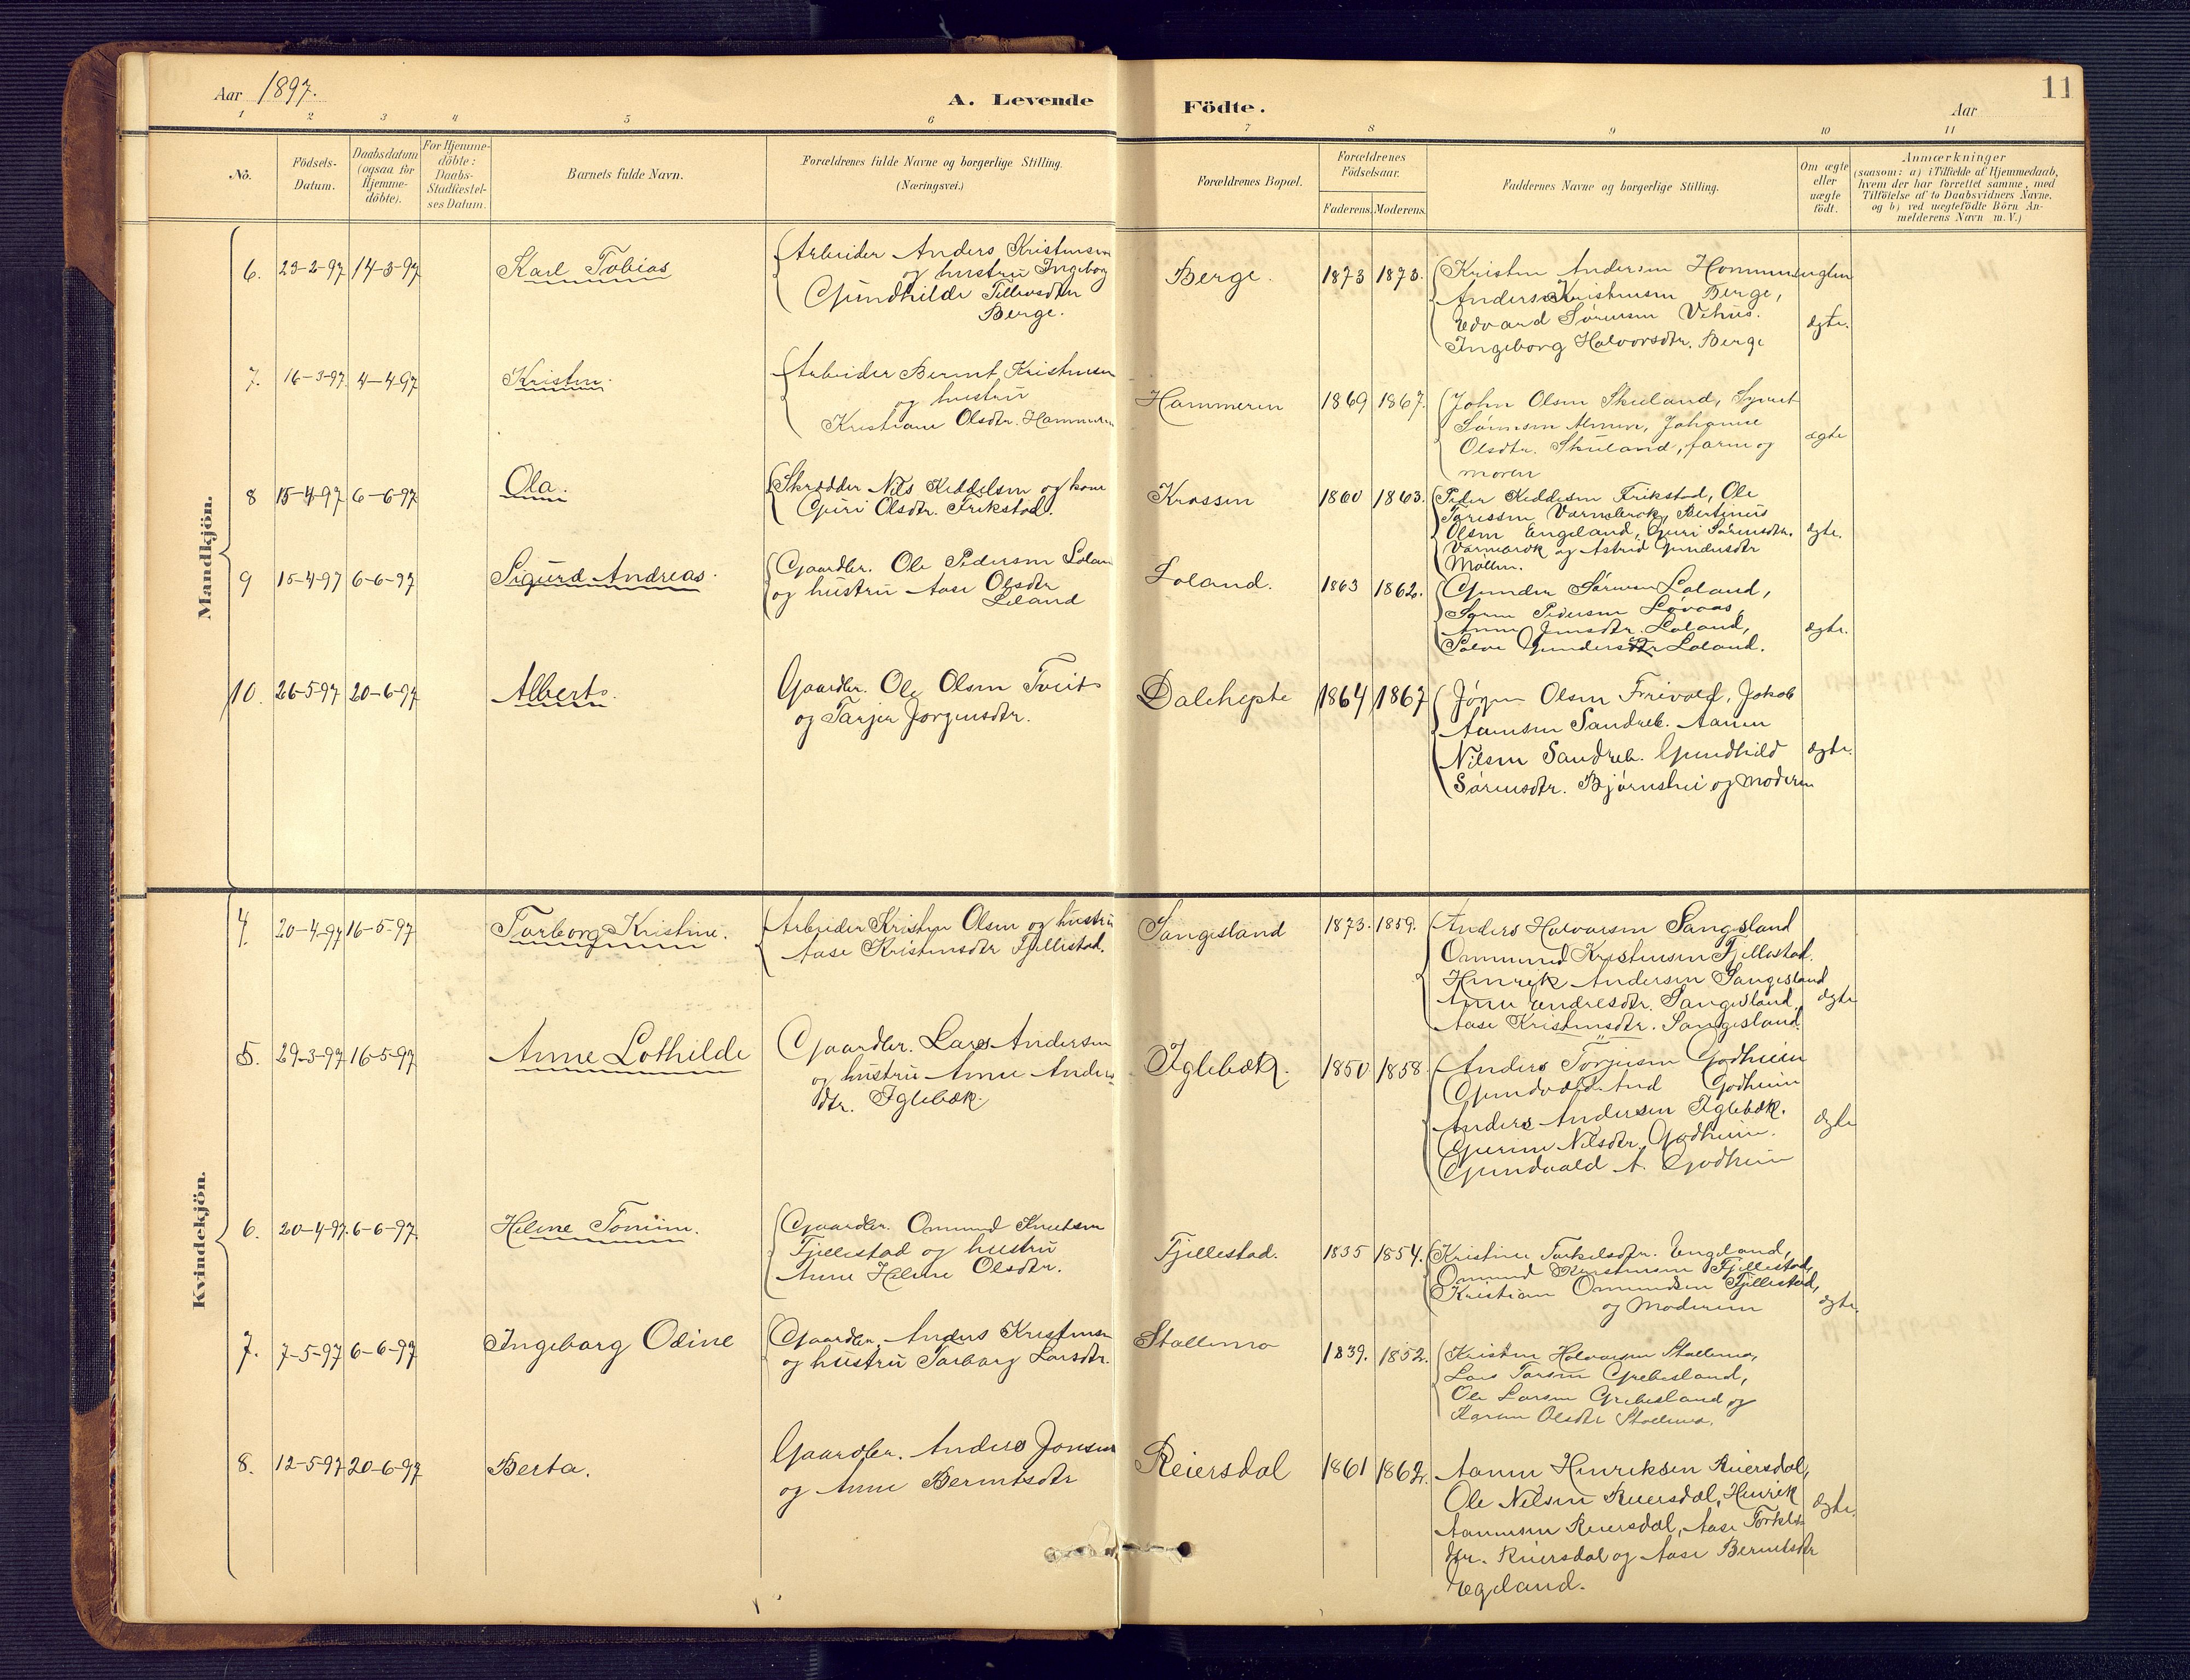 Aar 1897.
A. Levende Födte.
Aar
11
1 2 3 4 5 6 7 8 9 10 11
Nō.
Födsels-
Datum.
Daabsdatum
(ogsaa for
Hjemme-
döbte).
For Hjemme-
döbte:
Daabs-
Stadfæstel-
ses Datum.
Barnets fulde Navn.
Forældrenes fulde Navne og borgerlige Stilling.
(Næringsvei.)
Forældrenes Bopæl.
Forældrenes
Födselsaar.
Faderens. Moderens.
Faddernes Navne og borgerlige Stilling.
Om ægte
eller
uægte
födt.
Anmærkninger
(saasom: a) i Tilfælde af Hjemmedaab,
hvem der har forrettet samme, med
Tilföielse af to Daabsvidners Navne,
og b) ved uægtefödte Börn An-
melderens Navn m. V.)
Mandkjön.
6. 23-2-97 14-3-97 Karl Tobias
Arbeider Anders Kristensen
og hustru Ingeborg
Gundhilde Tellevsdtr
Berge.
Berge. 1873 1873.
Kristen Andersen
Anders Kristensen Berge,
Edvard Sørensen Vehus.
Ingeborg Halvorsdtr. Berge
ægte.
7. 16-3-97 4-4-97 Kristen.
Arbeider Bernt Kristensen
og hustru
Kristiane Olsdtr. Hammeren
Hammeren 1869 1867.
John Olsen Skuland, Syvert
Sørensen Johanne
Olsdtr. Skuland, faren og
moren
ægte
8 15-4-97 6-6-97 Ola.
Skrædder Nils Keddelsen og kone
Guri Olsdtr. Frikstad.
Krossen 1860 1863.
Peder Keddesen Frikstad, Ole
Bertinius
Olsen Engeland, Guri Sørensdtr.
og Astrid Gundersdtr
Mollen.
ægte.
9 15-4-97 6-6-97 Sigurd Andreas.
Gaardbr. Ole Pedersen Loland
og hustru Aase Olsdtr
Loland
Loland. 1863 1862.
Gunder Sørensen Loland,
Pedersen Løvaas,
Anne Jensdtr. Loland,
Salve Loland.
ægte.
10. 26-5-97 20-6-97 Albert.
Gaardbr. Ole Olsen Tveit
og Tarjer Jorgensdtr.
Dalehefte 1864 1867
Jørgen Olsen Frivold, Jakob
Aanensen Sandreb. Aanen
Nilsen Sandreb. Gundhild
Sørensdtr. og moderen
ægte.
Kvindekjön.
4. 20-4-97 16-5-97 Torborg Kristine.
Arbeider Kristen Olsen og hustru
Aase Kristensdtr Fjellestad.
Sangesland 1873. 1859.
Anders Halvorsen Sangesland
Ommund Kristensen Fjellestad.
Henrik Andersen Sangesland
Anne Andresdtr. Sangesland,
Aase Kristensdtr. Sangesland.
ægte
5. 29-3-97 16-5-97 Anne Lothilde
Gaardbr. Lars Andersen
og hustru Anne Anders
dtr. Iglebæk.
Iglebæk. 1850 1858
Anders Torjusen Godheim
Gundvald And Godheim
Anders Andersen Iglebæk.
Gurine Nilsdtr. Godheim.
Gundvald A. Godheim
ægte
6. 20-4-97. 6-6-97. Helene Tomine.
Gaardbr. Omund Knutsen
Fjellestad og hustru
Anne Helene Olsdtr.
Fjellestad. 1835 1854.
Kristine Torkelsdtr. Engeland,
Omund Kristensen Fjellestad,
Kristiane Omundsen Fjellestad,
og Moderen
ægte.
7. 7-5-97 6-6-97 Ingeborg Odine
Gaardbr. Anders Kristensen
og hustru Torborg Larsdtr.
Stallemo 1839. 1852.
Kristen Halvorsen Stallemo,
Lars Tarsen Grebesland,
Ole Larsen Grebesland og
Karen Olsdtr Stallemo.
8. 12-5-97 20-6-97 Berta.
Gaardbr. Anders Jonsen
og Anne Berentsdtr
Reiersdal 1861 1862.
Aanen Henriksen Reiersdal,
Ole Nilsen Reiersdal, Henrik
Aanensen Reiersdal, Aase Torkels
dtr. Reiersdal og Aase Berentsdtr
Egeland.
ægte.